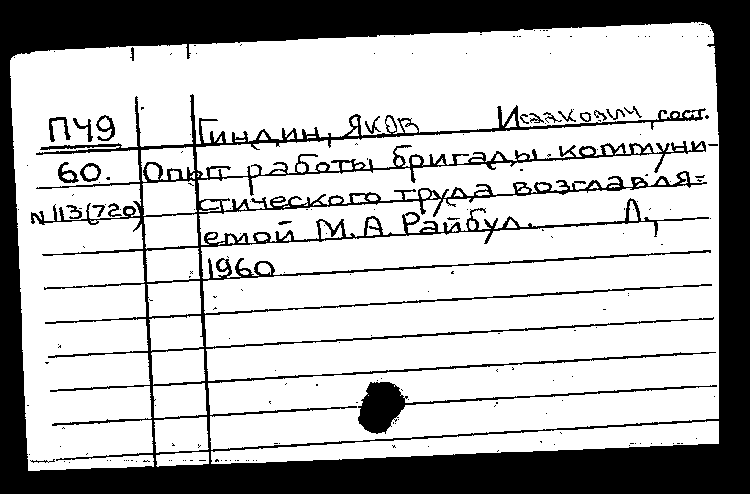 ПЧ9 Гиндин, Яков Исаакович, сост.
60. Опыт работы бригады коммуни-
N 113(720) стического труда возглавля=
емой М.А. Райбул. Л.,
1960